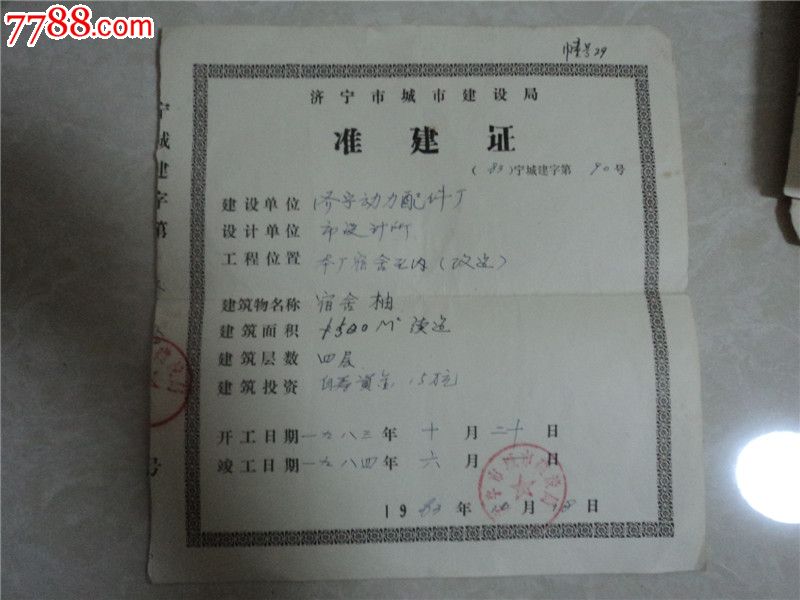 7788.com
济宁市城市建设局
准建证
(83)宁城建字第 90号
建设单位 济宁动力配件厂
设计单位 市设计所
工程位置 本厂宿舍区内(改造)
建筑物名称 宿舍
建筑面积 1500 M²
建筑层数 四层
建筑投资 自筹资金 15万元
开工日期 一九八三年 十月 二十日
竣工日期 一九八四年 六月 日
1983年10月18日
宁城建字第
号